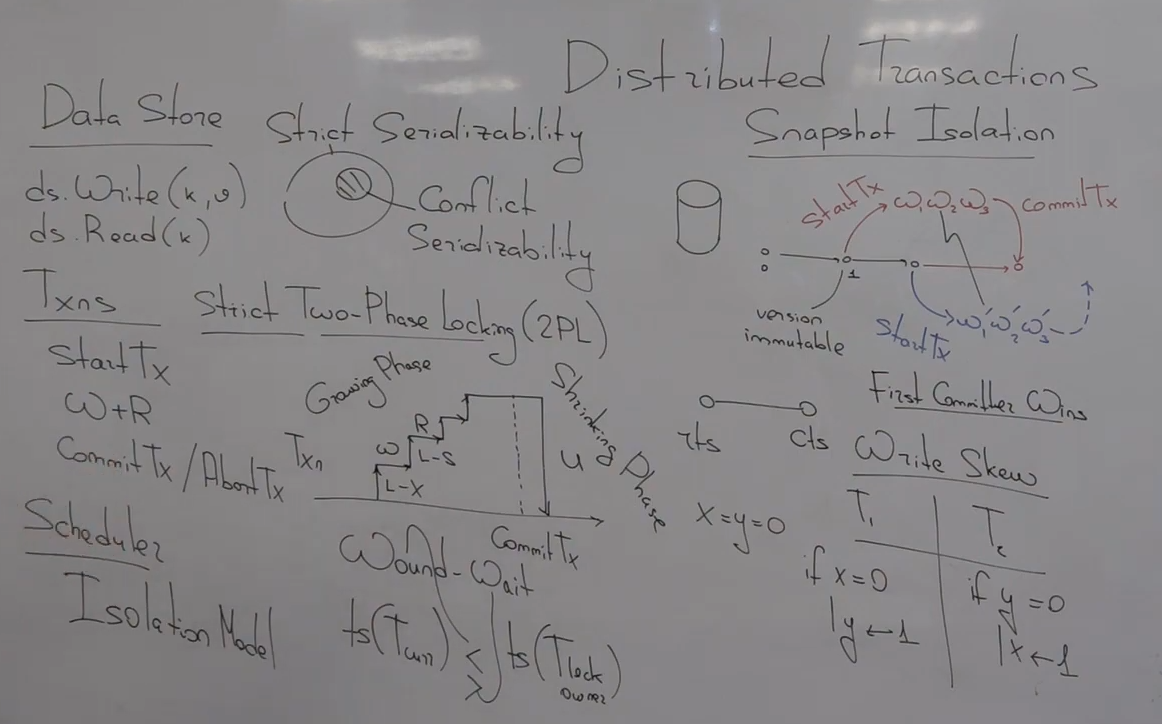 Distributed Transactions
Data Store
ds.Write(k,v)
ds.Read(k)
Txns
StartTx
W+R
CommitTx/AbortTx
Scheduler
Isolation Model
Strict Serializability
Conflict
Serializability
Strict Two-Phase Locking (2PL)
Growing Phase
Shrinking Phase
Txn
W
L-X
R
L-S
U
CommitTx
Wound-Wait
ts(Tcurr) < > ts(Tlock owner)
Snapshot Isolation
StartTx
W₁W₂W₃
CommitTx
1
version
immutable
StartTx
W₁'W₂'W₃'
First Committer Wins
rts
cts
Write Skew
x=y=0
T₁
if x=0
y←1
T₂
if y=0
x←1